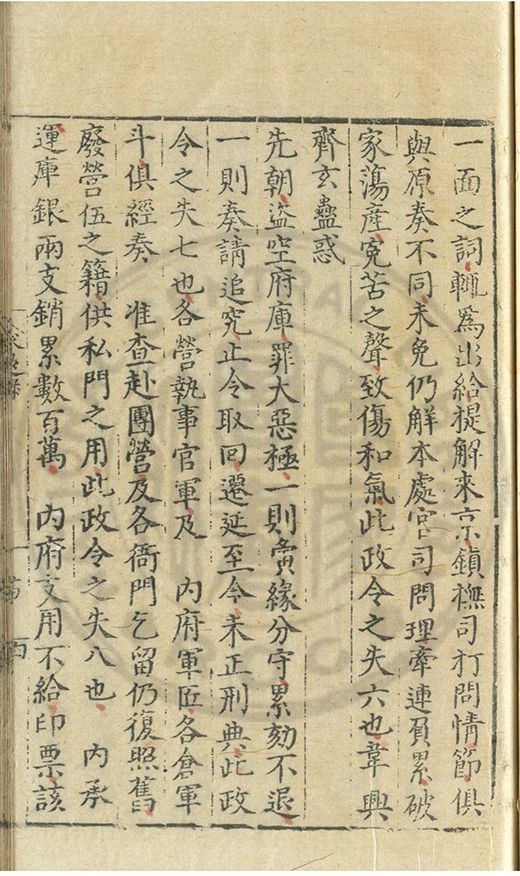 一面之詞輒爲出給提解來京鎮撫司打問情節俱
與原奏不同未免仍解本處官司問理牽連負累破
家蕩産寃苦之聲致傷和氣此政令之失六也韋興
齊玄蠱惑
先朝盗空府庫罪大惡極一則夤緣分守累劾不退
一則奏請追究止令取回遷延至今未正刑典此政
令之失七也各營執事官軍及　內府軍匠各倉軍
斗俱經奏　准查赴團營及各衙門乞留仍復照舊
廢營伍之籍供私門之用此政令之失八也　內承
運庫銀兩支銷累數百萬　內府支用不給印票該